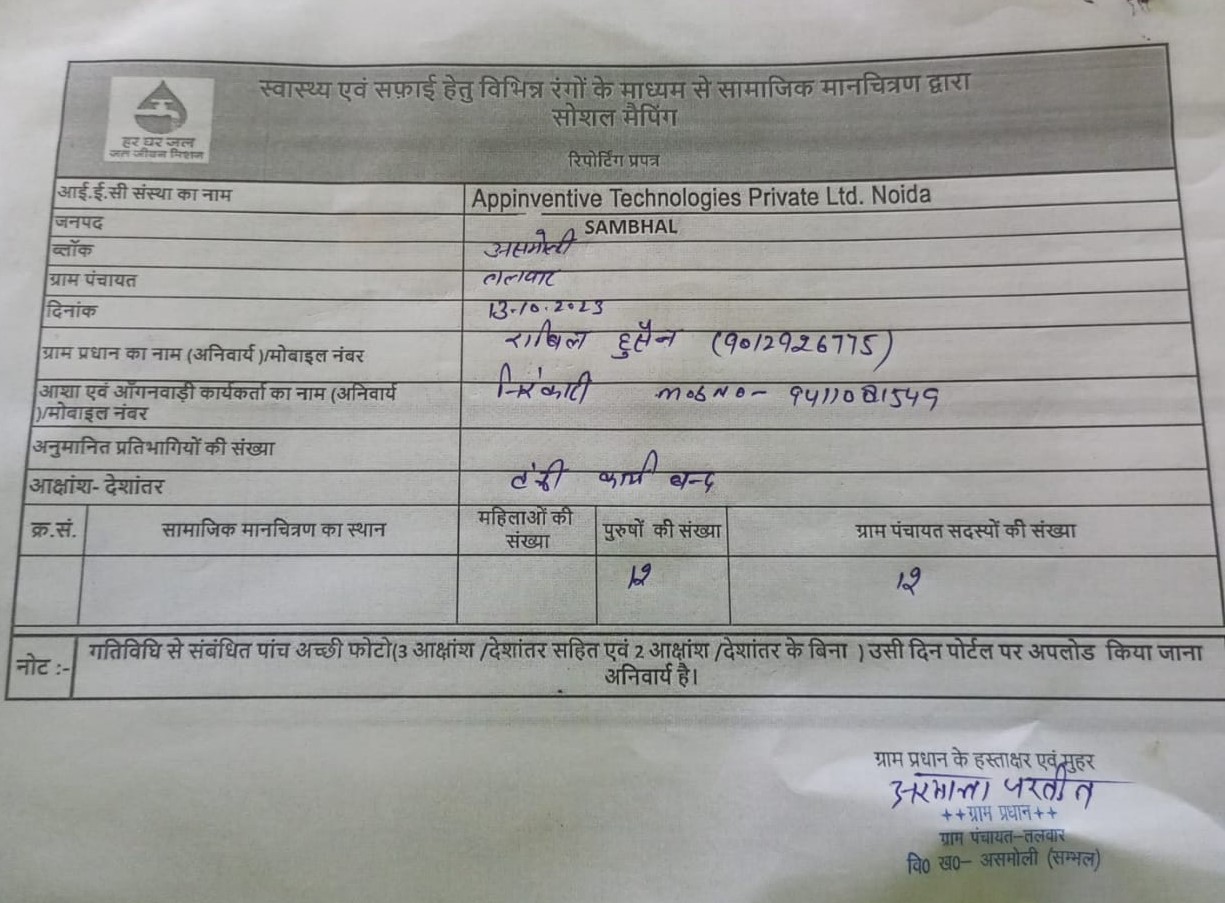 स्वास्थ्य एवं सफ़ाई हेतु विभिन्न रंगों के माध्यम से सामाजिक मानचित्रण द्वारा
सोशल मैपिंग
हर घर जल
जल जीवन मिशन
रिपोर्टिंग प्रपत्र
आई.ई.सी संस्था का नाम Appinventive Technologies Private Ltd. Noida
जनपद SAMBHAL
ब्लॉक असमोली
ग्राम पंचायत तलवार
दिनांक 13.10.2023
ग्राम प्रधान का नाम (अनिवार्य )/मोबाइल नंबर हुसैन (9012926775)
आशा एवं ऑगनवाड़ी कार्यकर्ता का नाम (अनिवार्य
)/मोबाइल नंबर mob no-
अनुमानित प्रतिभागियों की संख्या
आक्षांश- देशांतर कार्य बन्द
क्र.सं. सामाजिक मानचित्रण का स्थान महिलाओं की संख्या पुरुषों की संख्या ग्राम पंचायत सदस्यों की संख्या
12 12
नोट :- गतिविधि से संबंधित पांच अच्छी फोटो(3 आक्षांश /देशांतर सहित एवं 2 आक्षांश /देशांतर के बिना ) उसी दिन पोर्टल पर अपलोड किया जाना
अनिवार्य है।
ग्राम प्रधान के हस्ताक्षर एवं मुहर
++ग्राम प्रधान++
ग्राम पंचायत-तलवार
वि0 ख0- असमोली (सम्भल)